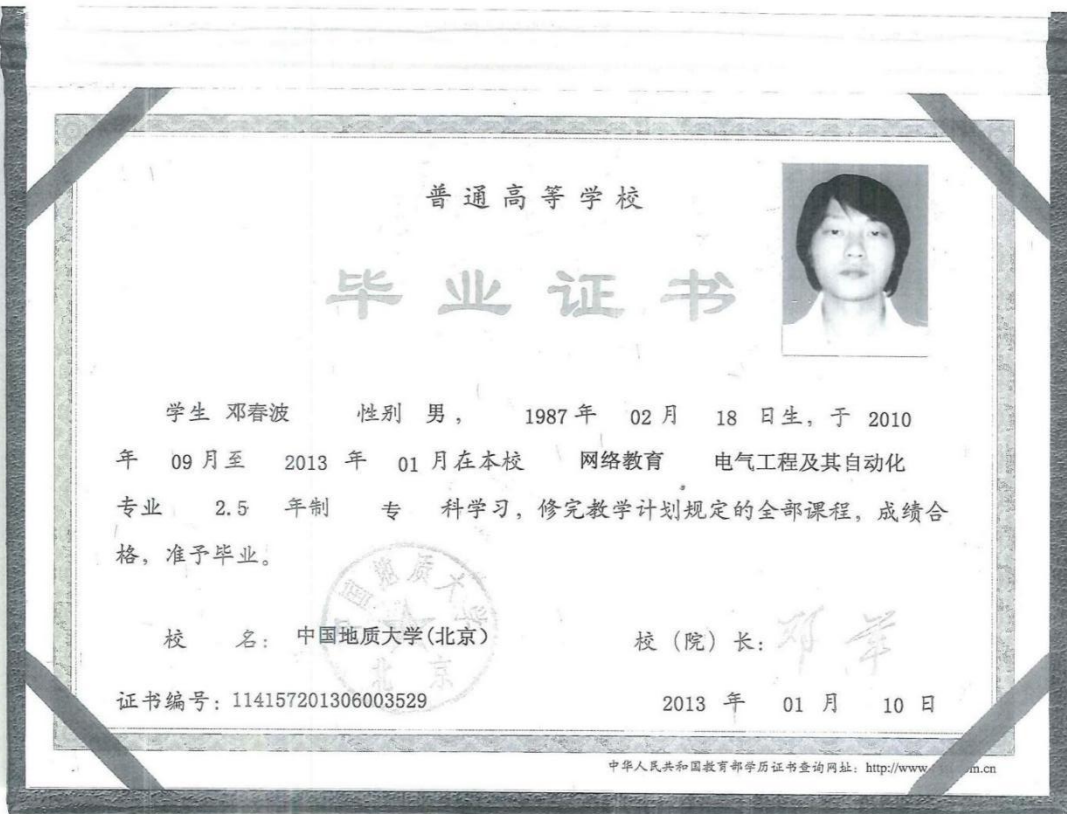 普通高等学校
毕业证书
学生 邓春波 性别 男， 1987 年 02 月 18 日生，于 2010
年 09 月至 2013 年 01 月在本校 网络教育 电气工程及其自动化
专业 2.5 年制 专 科学习，修完教学计划规定的全部课程，成绩合
格，准予毕业。
中国地质大学
北京
校 名：中国地质大学(北京) 校（院）长：邓军
证书编号：114157201306003529 2013 年 01 月 10 日
中华人民共和国教育部学历证书查询网址：http://www